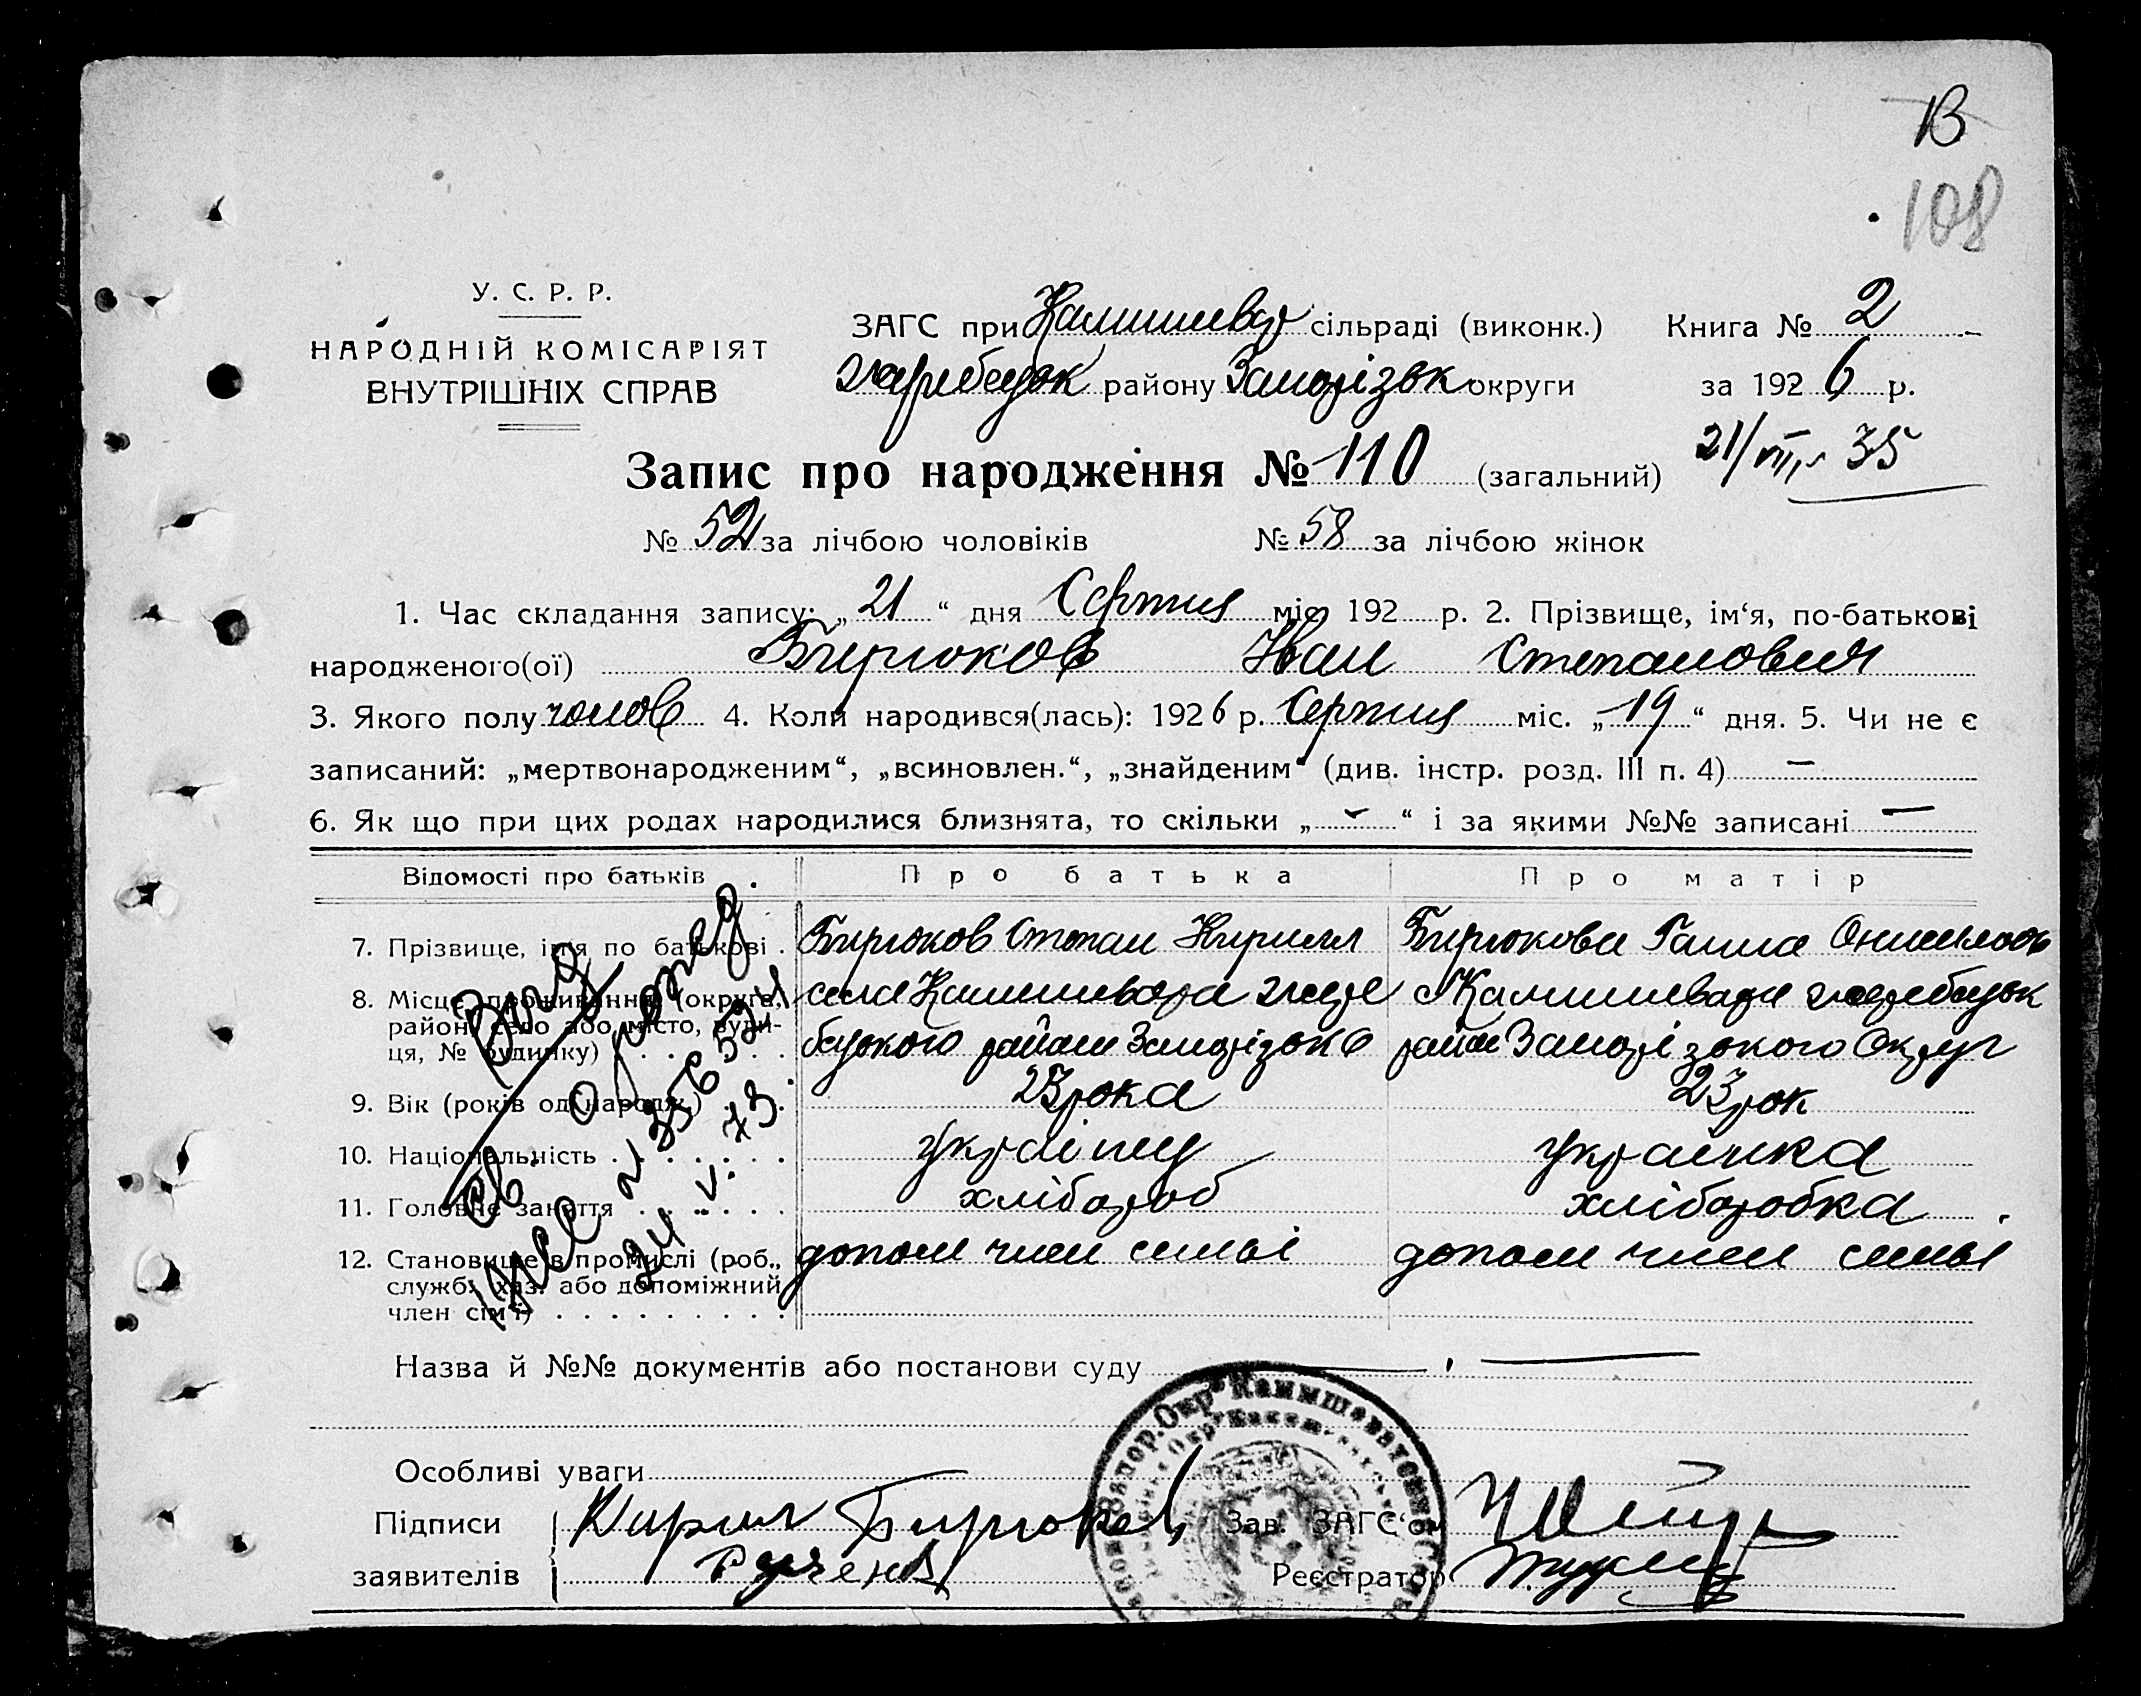 В
108
У. С. Р. Р.
НАРОДНІЙ КОМІСАРІЯТ
ВНУТРІШНІХ СПРАВ
ЗАГС при Камишевах сільраді (виконк.) Книга № 2
Жеребецьк району Запорізьк округи за 1926 р.
Запис про народження № 110 (загальний) 21/VII 35
№ 52 за лічбою чоловіків № 58 за лічбою жінок
1. Час складання запису: „21“ дня Серпня міс. 192 р. 2. Прізвище, ім‘я, по-батькові
народженого(ої) Бирюков Иван Степанович
3. Якого полу чолов 4. Коли народився(лась): 1926 р. Серпня міс. „19“ дня. 5. Чи не є
записаний: „мертвонародженим“, „всиновлен.“, „знайденим“ (див. інстр. розд. III п. 4) —
6. Як що при цих родах народилися близнята, то скільки „-“ і за якими №№ записані —
Відомості про батьків Про батька Про матір
7. Прізвище, ім‘я по батькові . Бирюков Степан Кирилл Бирюкова Ганна
8. Місце проживання (округа,
район, село або місто, вули-
ця, № будинку)
села Камишеваха жере
бецького району Запорізьк
с Камишеваха жеребецьк
район Запорізького Округ
9. Вік (років од народж.) 23 рока 23 рок
10. Національність українец українка
11. Головне заняття хлібороб хліборобка
12. Становище в промислі (роб.,
служб. хаз. або допоміжний
член сім‘ї)
допом член семьі допом член семьі
Выд
св. о рожд.
24 V. 73.
Назва й №№ документів або постанови суду —
Особливі уваги —
Підписи
заявителів
Кирил Бирюков
Зав. ЗАГС‘ом
Реєстратор